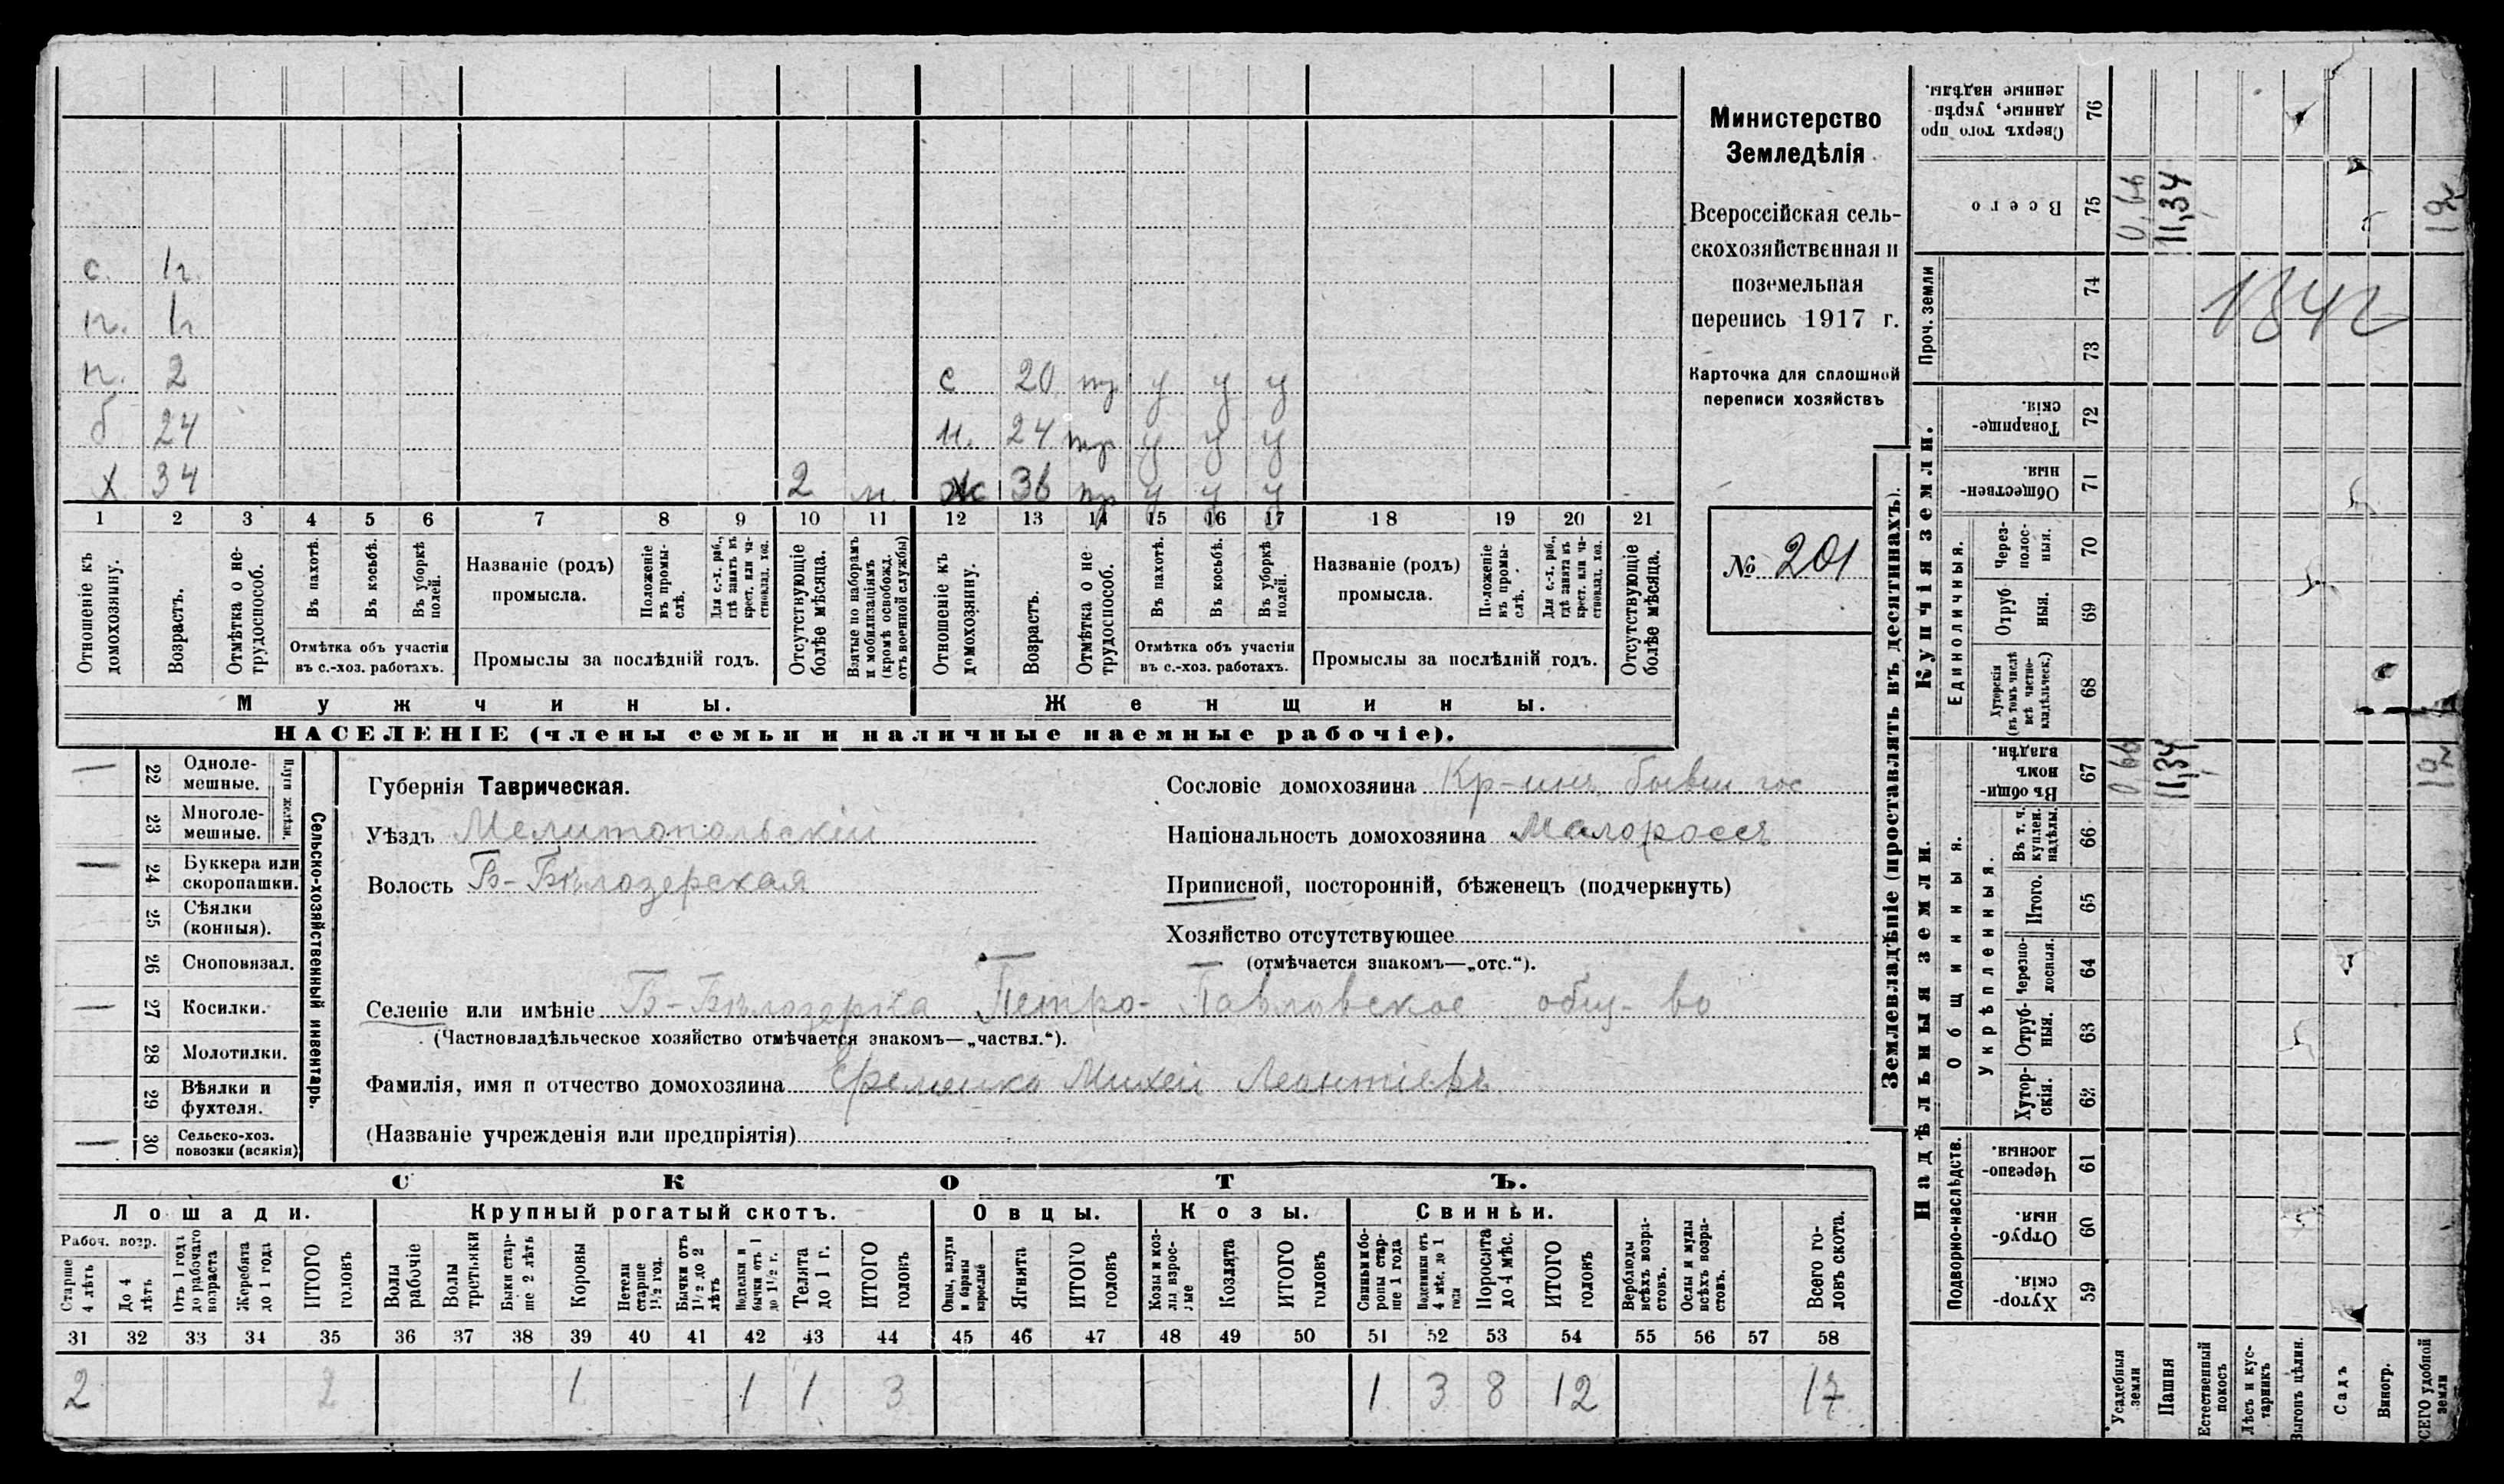 с. 1 г.
п. 1 г
п. 2 с 20 тр у у у
б 24 н. 24 тр у у у
х 34 2 м. ж 36 тр у у у
1 2 3 4 5 6 7 8 9 10 11 12 13 14 15 16 17 18 19 20 21
Отношеніе къ домохозяину.
Возрастъ.
Отмѣтка о нетрудоспособ.
Въ пахотѣ.
Въ косьбѣ.
Въ уборкѣ полей.
Отмѣтка объ участіи
въ с.-хоз. работахъ.
Названіе (родъ)
промысла.
Положеніе въ промыслѣ.
Для с.-х. раб., гдѣ занятъ въ крест. или частновлад. хоз.
Промыслы за послѣдній годъ.
Отсутствующіе болѣе мѣсяца.
Взятые по наборамъ и мобилизаціямъ (кромѣ освобожд. отъ военной службы)
Отношеніе къ домохозяину.
Возрастъ.
Отмѣтка о нетрудоспособ.
Въ пахотѣ.
Въ косьбѣ.
Въ уборкѣ полей.
Отмѣтка объ участіи
въ с.-хоз. работахъ.
Названіе (родъ)
промысла.
Положеніе въ промыслѣ.
Для с.-х. раб., гдѣ занята въ крест. или частновлад. хоз.
Промыслы за послѣдній годъ.
Отсутствующіе болѣе мѣсяца.
Мужчины. Женщины.
НАСЕЛЕНІЕ (члены семьи и наличные наемные рабочіе).
Министерство
Земледѣлія
Всероссійская сель-
скохозяйственная и
поземельная
перепись 1917 г.
Карточка для сплошной
переписи хозяйствъ
№ 201
Сельско-хозяйственный инвентарь.
Плуги желѣзн.
— 22 Однолемешные.
23 Многолемешные.
— 24 Буккера или скоропашки.
25 Сѣялки (конныя).
26 Сноповязал.
— 27 Косилки.
28 Молотилки.
29 Вѣялки и фухтеля.
— 30 Сельско-хоз. повозки (всякія)
Губернія Таврическая.
Уѣздъ Мелитопольскій
Волость Б-Бѣлозерская
Сословіе домохозяина Кр-инъ бывш гос
Національность домохозяина Малороссъ
Приписной, посторонній, бѣженецъ (подчеркнуть)
Хозяйство отсутствующее
(отмѣчается знакомъ—„отс.“).
Селеніе или имѣніе Б-Бѣлозерка Петро-Павловское общ-во
(Частновладѣльческое хозяйство отмѣчается знакомъ—„частвл.“).
Фамилія, имя и отчество домохозяина Еременко Михей Леонтіевъ
(Названіе учрежденія или предпріятія)
СКОТЪ.
Лошади. Крупный рогатый скотъ. Овцы. Козы. Свиньи.
Рабоч. возр.
Старше 4 лѣтъ
До 4 лѣтъ
Отъ 1 года до рабочаго возраста
Жеребята до 1 года
ИТОГО головъ
Волы рабочіе
Волы третьяки
Быки старше 2 лѣтъ
Коровы
Нетели старше 1½ год.
Бычки отъ 1½ до 2 лѣтъ
Подтелки и бычки отъ 1 до 1½ г.
Телята до 1 г.
ИТОГО головъ
Овцы, валухи и бараны взрослые
Ягнята
ИТОГО головъ
Козы и козлы взрослые
Козлята
ИТОГО головъ
Свиньи и боровы старше 1 года
Подсвинки отъ 4 мѣс. до 1 года
Поросята до 4 мѣс.
ИТОГО головъ
Верблюды всѣхъ возрастовъ.
Ослы и мулы всѣхъ возрастовъ.
Всего головъ скота.
31 32 33 34 35 36 37 38 39 40 41 42 43 44 45 46 47 48 49 50 51 52 53 54 55 56 57 58
2 2 1 1 1 3 1 3 8 12 17
Землевладѣніе (проставлять въ десятинахъ).
Надѣльныя земли.
Купчія земли.
Проч. земли
Подворно-наслѣдств.
Общинныя.
Укрѣпленныя.
Единоличныя.
Сверхъ того проданные, укрѣпленные надѣлы. 76
Всего 75 0,66 11,34 12
74
1842
73
Товарищескія. 72
Общественныя. 71
Черезполосныя. 70
Отрубныя. 69
Хуторскія (въ томъ числѣ всѣ частновладѣльческ.) 68
Въ общинномъ владѣн. 67 0,66 11,34 12
Въ т. ч. куплен. надѣлы. 66
Итого. 65
Черезполосныя. 64
Отрубныя. 63
Хуторскія. 62
Черезполосныя. 61
Отрубныя. 60
Хуторскія. 59
Усадебныя земли
Пашня
Естественный покосъ
Лѣсъ и кустарникъ
Выгонъ цѣлин.
Садъ
Виногр.
ВСЕГО удобной земли